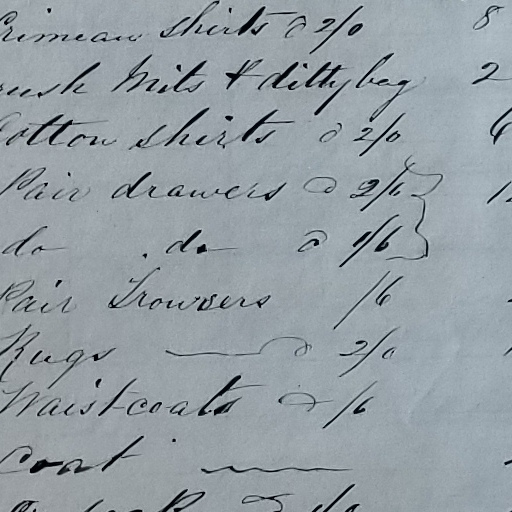 Crimean shirts @ 2/0 8
rush Mits & dittybag 2
Cotton shirts @ 2/0 6
Pair drawers @ 2/6 1
do . do @ 1/6
Pair Trowsers /6
Rugs @ 2/0
Waistcoats @ /6
Coat